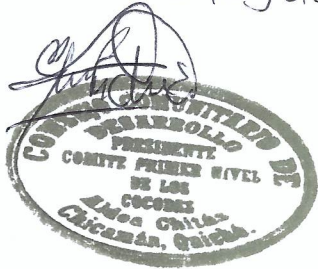 CONSEJO COMUNITARIO DE
DESARROLLO
PRESIDENTE
COMITE PRIMER NIVEL
DE LOS
COCODES
Aldea Chitán
Chicamán, Quiché.